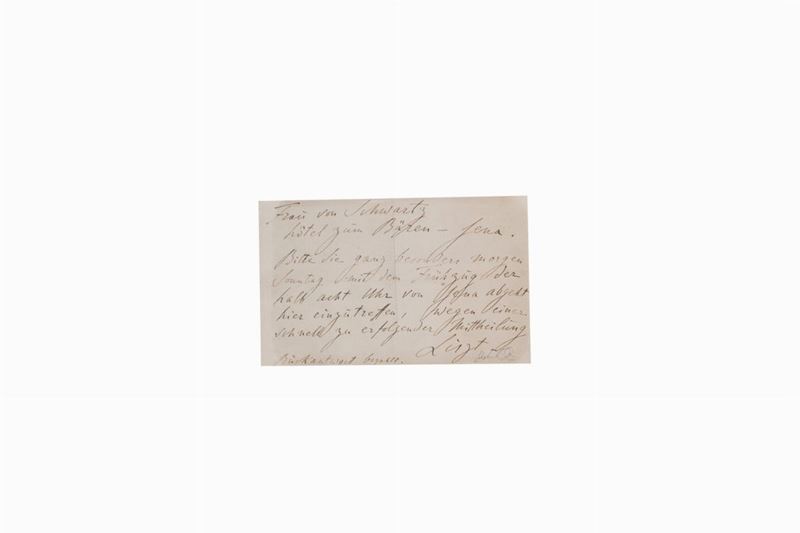 Frau von Schwartz
hôtel zum Bären – Jena.
Bitte Sie ganz besonders morgen
Sonntag mit dem Frühzug der
halb acht Uhr von Jena abgeht
hier einzutreffen, wegen einer
schnell zu erfolgender Mittheilung
Liszt
Rückantwort